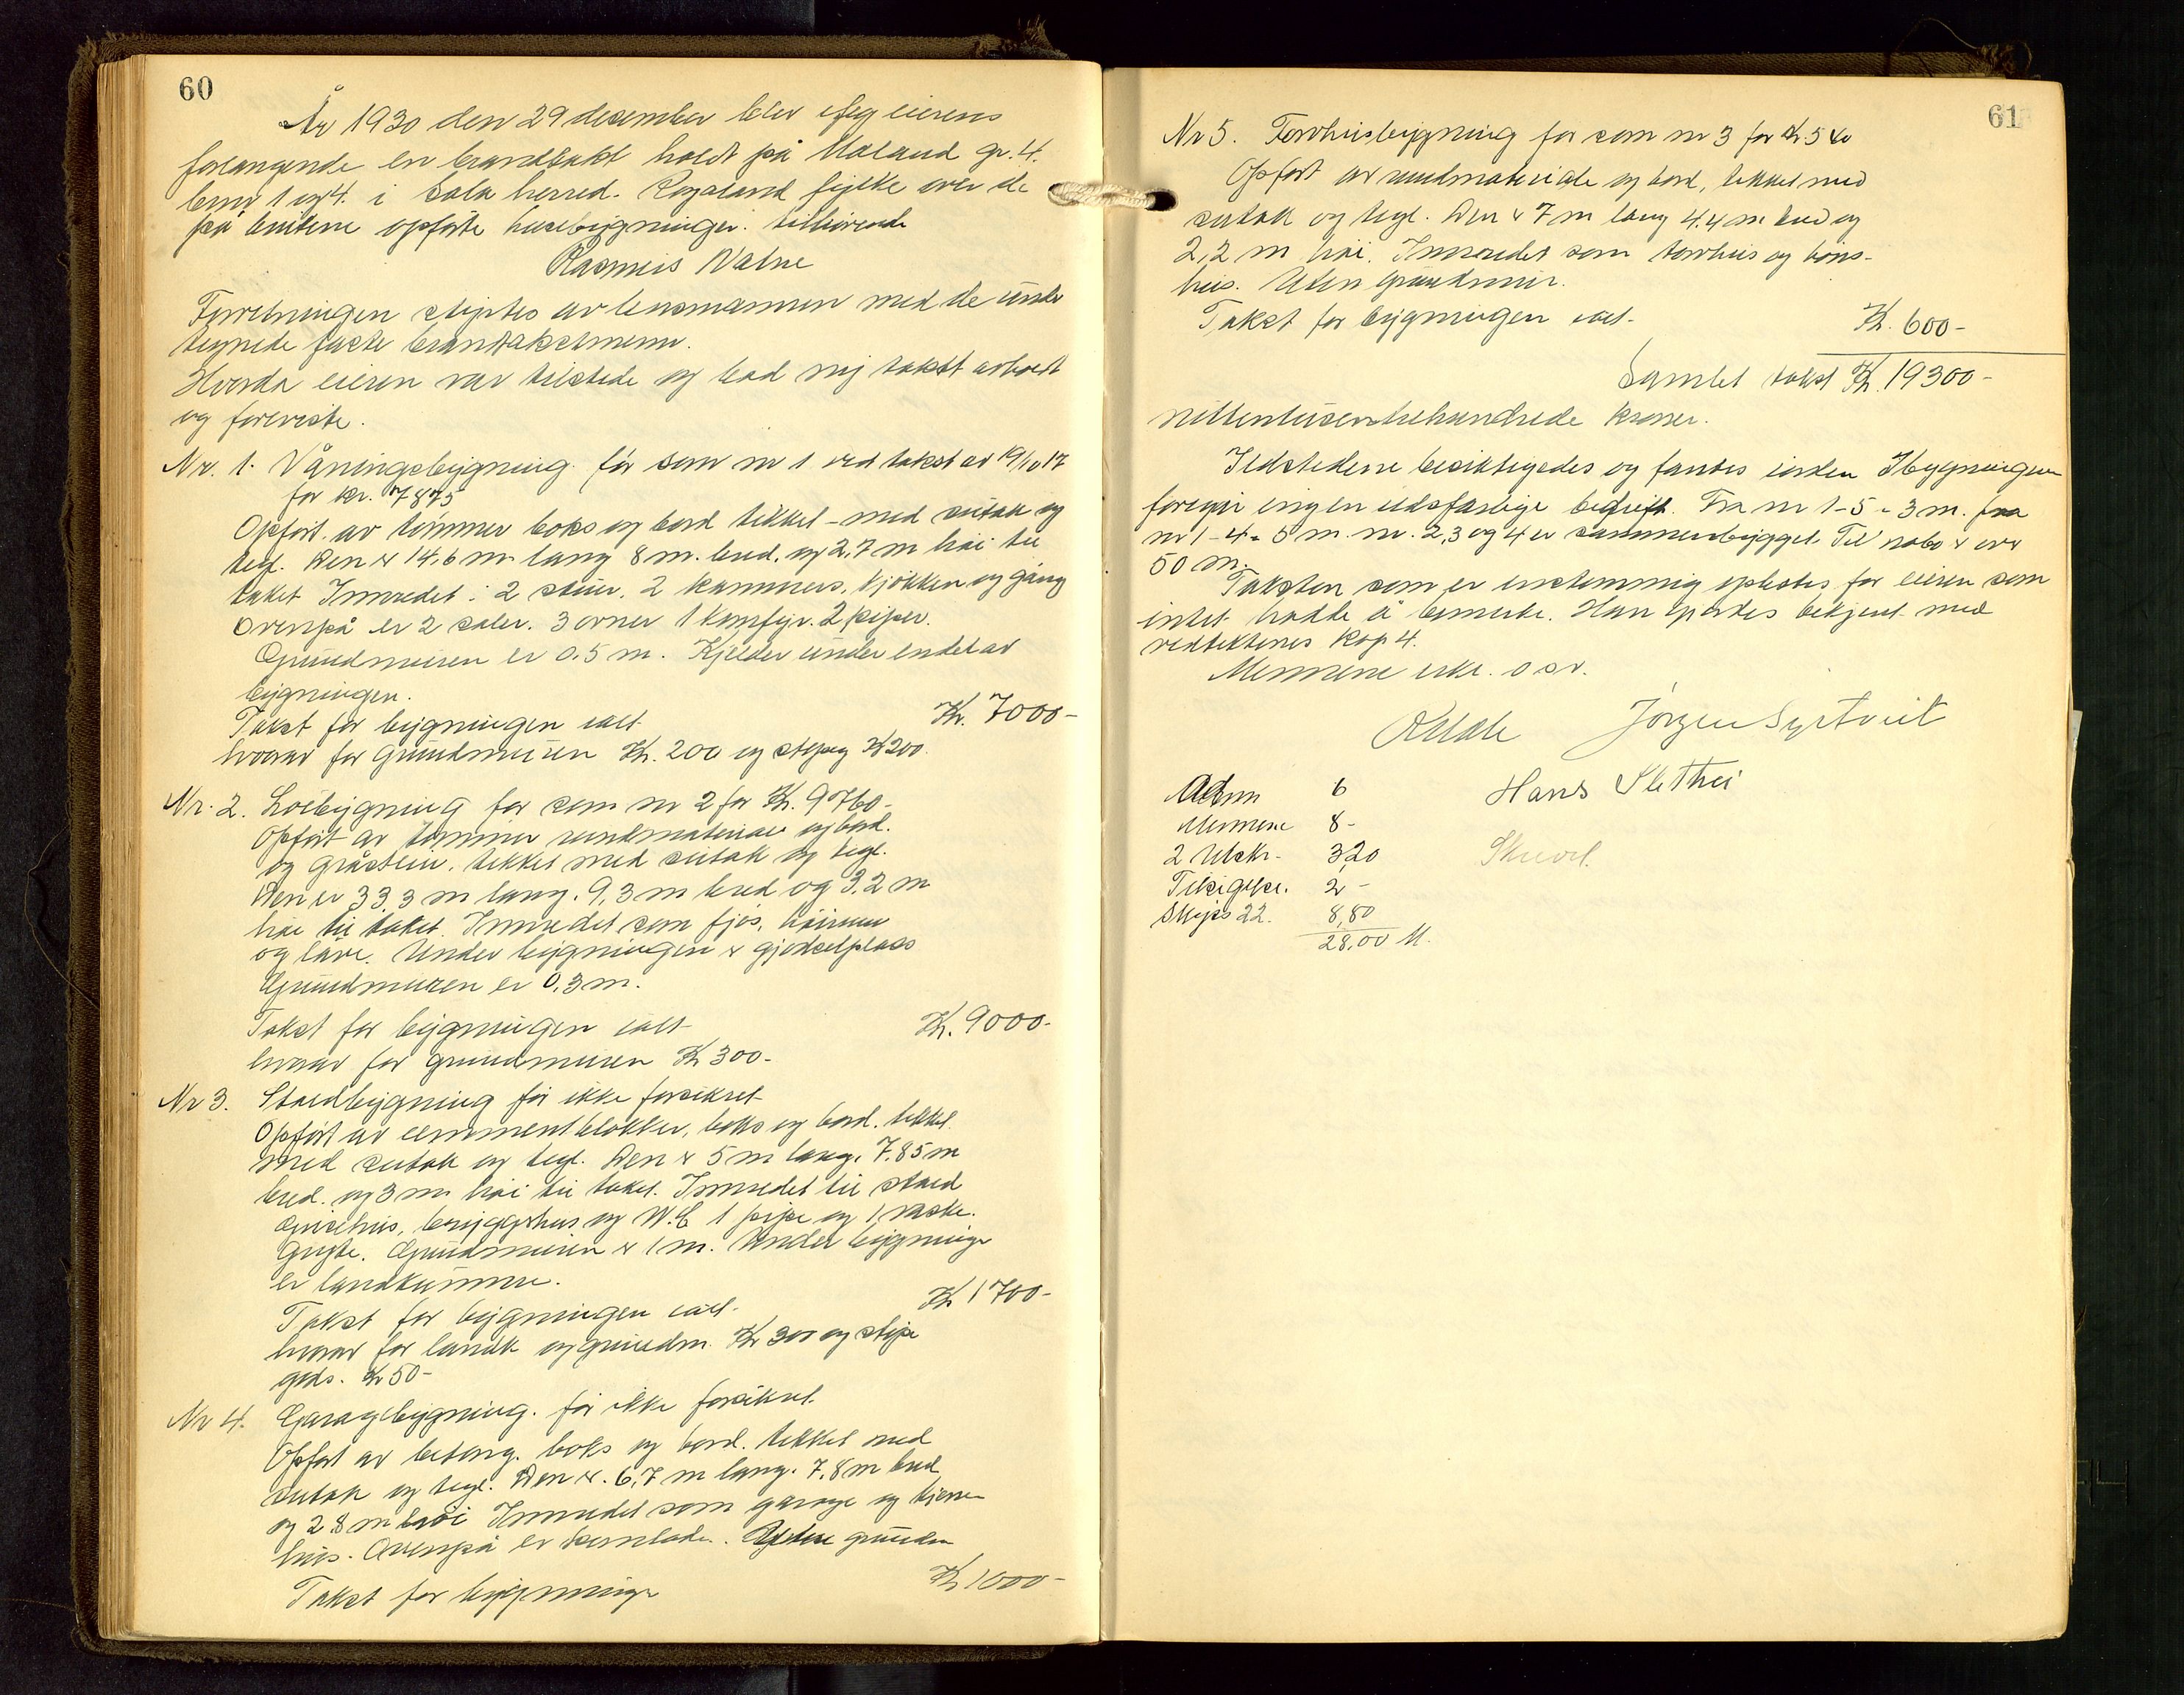 60
År 1930 den 29 desember blev efter eierens
forlangende en brandtakst holdt på Meland gr. 4.
bnr 1 og 4. i Sola herred. Rogaland fylke over de
på brukene opførte husebygninger. tilhørende
Rasmus Natne
Forretningen styrtes av lensmannen med de under
tegnede faste brantakstmenn.
Hvorda eieren var tilstede og bad sig takst avholdt
og foreviste.
Nr. 1. Våningsbygning. før som nr 1 ved takst av 19/10 17
for kr. 7875
Opført. av tømmer boks og bord tekket med sutak og
tegl. Den er 14,6 m lang 8 m. bred. og 2,7 m høi til
taket Innredet: 2 stuer, 2 kammers, kjøkken og gang
Ovenpå er 2 saler. 3 ovner 1 komfyr. 2 piper.
Grundmuren er 0.5 m. Kjelder under endel av
bygningen.
Takst for bygningen ialt Kr. 7000-
hvorav for grundmuren Kr. 200 og Kr 200.
Nr. 2. Løebygning før som nr 2 for Kr. 9760-
Opført av tømmer rundmateriale og bord.
og gråsten. tekket med sutak og tegl.
Den er 33,3 m lang. 9,3 m bred og 3,2 m
høi til taket. Innredet som fjøs, høirum
og låve. Under bygningen er gjødselplass
Grundmuren er 0,3 m.
Takst for bygningen ialt Kr. 9000-
hvorav for grundmuren Kr 300-
Nr 3. Staldbygning før ikke forsikret
Opført av cementblokker, boks og bord. tekket
med sutak og tegl. Den er 5 m lang. 7,85 m
bred. og 3 m høi til taket. Innredet til stald
grisehus, bryggehus og W.C 1 pipe og 1 vaske.
gryte. Grundmuren er 1 m. Under bygningen
er landkummer.
Takst for bygningen ialt- Kr 1700-
hvorav for landk og grundm. Kr 300 og støpe
gods. Kr 50-
Nr 4. Garagebygning. før ikke forsikret.
Opført av betong. boks og bord. tekket med
sutak og tegl. Den er. 6,7 m lang. 7,8 m bred
og 2 8 m høi Innredet som garage og kjerre
hus. Ovenpå er kornlade. grundm
Takst for bygningen Kr 1000-
61
Nr 5. Torvhusbygning før som nr 3 for Kr 540
Opført av rundmateriale og bord, tekket med
sutak og tegl. Den er 7 m lang 4,4 m bred og
2,2 m høi. Innredet som torvhus og høns-
hus. Uten grundmur.
Takst for bygningen ialt- Kr. 600-
Samlet takst Kr. 19300-
nittentusentrehundrede kroner.
Ildstedene besiktigedes og fantes i orden I bygningen
foregår ingen ildsfarlige bedrift. Fra nr 1-5 = 3 m. fra
nr 1-4 = 5 m. nr. 2,3 og 4 er sammenbygget. Til nabo er over
50 m.
Taksten som er enstemmig oplestes for eieren som
intet hadde å bemerke. Han gjordes bekjent med
vedtektenes kap 4.
Mennene erkl. o s v.
Jørgen Syrtveit
Hans Sletthei
Adm 6
Mennene 8-
2 Utskr- 3,20
2-
Skyss 22. 8,80
28,00